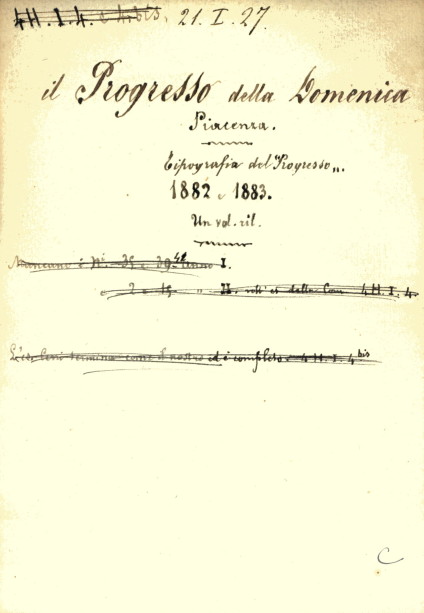 4H. I. 4. e 4 bis, 21. I. 27.
il Progresso della Domenica
Piacenza.
Tipografia del Progresso„.
1882 e 1883.
Un vol. ril.
Mancano i Ni. 35 e 39 Anno I.
e 2 e 15 „ II. della Com 4 H. I. 4.
termina come il nostro ed è completo 4 H. I. 4 bis
C